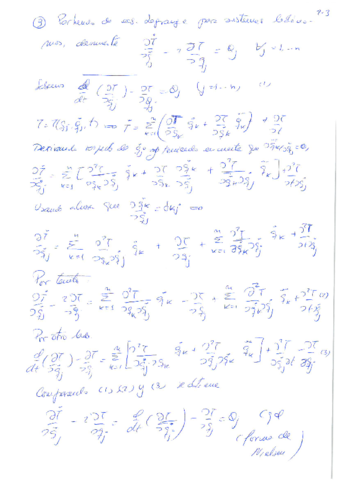 9.3
③ Partiendo de ecs. de Lagrange para sistemas holónomos, demuestre
∂Ṫ/∂q̇_j − 2 ∂T/∂q_j = Q_j ∀j = 1...n
d/dt (∂T/∂q̇_j) − ∂T/∂q_j = Q_j (j = 1...n) (1)
T = T(q_j, q̇_j, t) ⇒ Ṫ = Σ_{k=1}^n (∂T/∂q_k q̇_k + ∂T/∂q̇_k q̈_k) + ∂T/∂t
Derivando respecto de q̇_j y teniendo en cuenta que ∂q̈_k/∂q̇_j = 0,
∂Ṫ/∂q̇_j = Σ_{k=1}^n [∂²T/∂q_k∂q̇_j q̇_k + ∂T/∂q_k ∂q̇_k/∂q̇_j + ∂²T/∂q̇_k∂q̇_j q̈_k] + ∂²T/∂t∂q̇_j
Usando ahora que ∂q̇_k/∂q̇_j = δ_kj ⇒
∂Ṫ/∂q̇_j = Σ_{k=1}^n ∂²T/∂q_k∂q̇_j q̇_k + ∂T/∂q_j + Σ_{k=1}^n ∂²T/∂q̇_k∂q̇_j q̈_k + ∂²T/∂t∂q̇_j
Por tanto
∂Ṫ/∂q̇_j − 2 ∂T/∂q_j = Σ_{k=1}^n ∂²T/∂q_k∂q̇_j q̇_k − ∂T/∂q_j + Σ_{k=1}^n ∂²T/∂q̇_k∂q̇_j q̈_k + ∂²T/∂t∂q̇_j (2)
Por otro lado
d/dt (∂T/∂q̇_j) − ∂T/∂q_j = Σ_{k=1}^n [∂²T/∂q̇_j∂q_k q̇_k + ∂²T/∂q̇_j∂q̇_k q̈_k] + ∂²T/∂q̇_j∂t − ∂T/∂q_j (3)
Comparando (1), (2) y (3) se obtiene
∂Ṫ/∂q̇_j − 2 ∂T/∂q_j = d/dt (∂T/∂q̇_j) − ∂T/∂q_j = Q_j
(forma de
Nielsen)